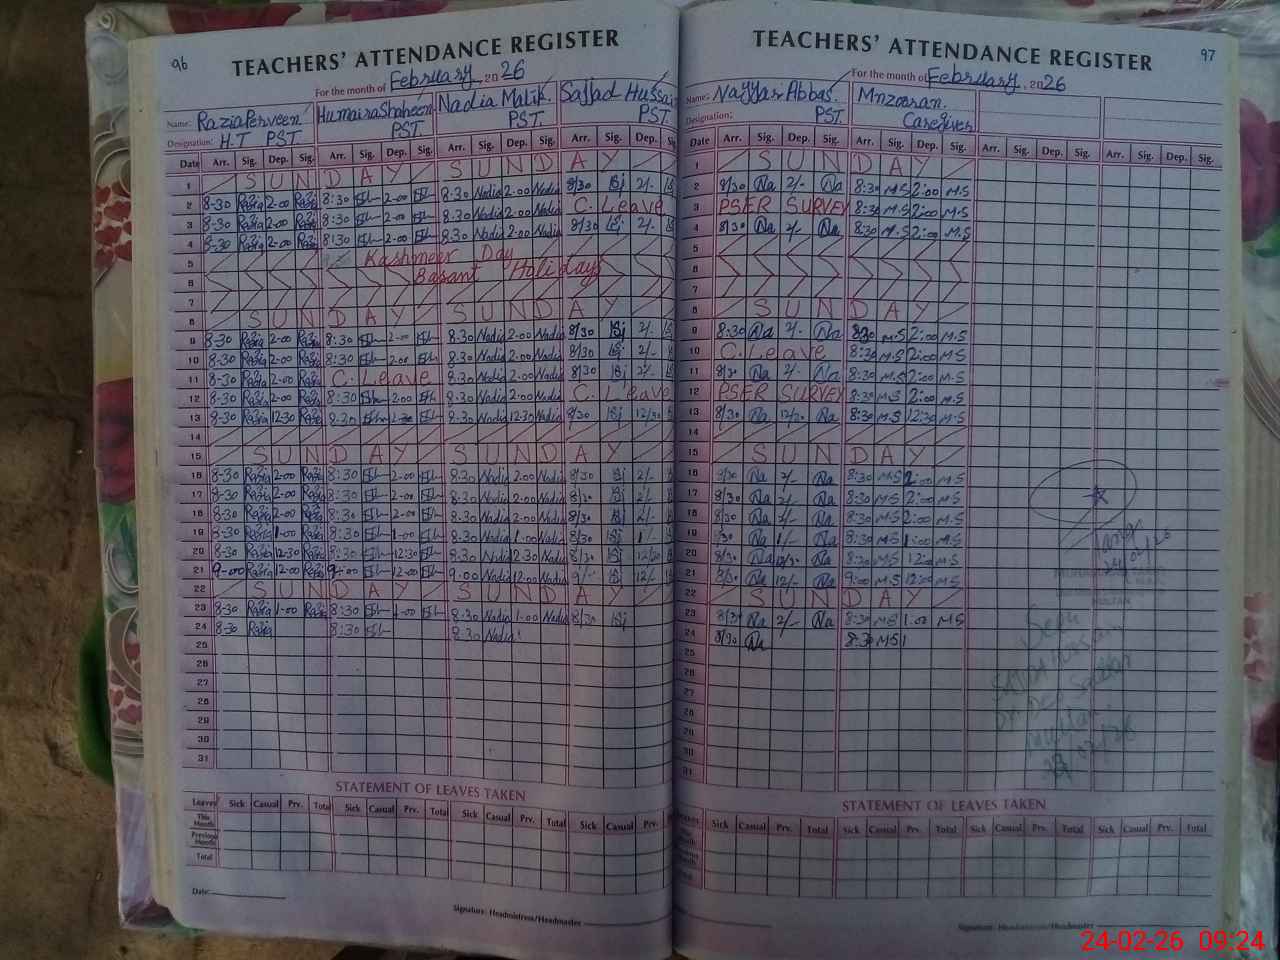 96
TEACHERS' ATTENDANCE REGISTER
For the month of February, 2026
Name: Razia Perveen Humaira Shaheen Nadia Malik. Sajjad Hussain
Designation: H.T PST. PST. PST. PST.
Date Arr. Sig. Dep. Sig. Arr. Sig. Dep. Sig. Arr. Sig. Dep. Sig. Arr. Sig. Dep.
1 SUNDAY SUNDAY
2 8-30 Razia 2-00 Razia 8:30 2-00 8.30 Nadia 2.00 Nadia 8/30 Sj 2/-
3 8-30 Razia 2-00 Razia 8:30 2-00 8.30 Nadia 2.00 Nadia C. Leave
4 8-30 Razia 2-00 Razia 8:30 2-00 8.30 Nadia 2.00 Nadia 8/30 Sj 2/-
5 Kashmeer Day
6 Basant Holidays
7
8 SUNDAY SUNDAY
9 8-30 Razia 2-00 Razia 8:30 2-00 8.30 Nadia 2.00 Nadia 8/30 Sj 2/-
10 8-30 Razia 2-00 Razia 8:30 2-00 8.30 Nadia 2.00 Nadia 8/30 Sj 2/-
11 8-30 Razia 2-00 Razia C. Leave 8.30 Nadia 2.00 Nadia 8/30 Sj 2/-
12 8-30 Razia 2-00 Razia 8:30 2-00 8.30 Nadia 2.00 Nadia C. Leave
13 8-30 Razia 12-30 Razia 8:30 8.30 Nadia 12-30 Nadia 8/30 Sj 12/30
14
15 SUNDAY SUNDAY
16 8-30 Razia 2-00 Razia 8:30 2-00 8.30 Nadia 2.00 Nadia 8/30 Sj 2/-
17 8-30 Razia 2-00 Razia 8:30 2-00 8.30 Nadia 2.00 Nadia 8/30 Sj 2/-
18 8-30 Razia 2-00 Razia 8:30 2-00 8.30 Nadia 2.00 Nadia 8/30 Sj 2/-
19 8-30 Razia 1-00 Razia 8:30 1-00 8.30 Nadia 1.00 Nadia 8/30 Sj 1/-
20 8-30 Razia 12-30 Razia 8:30 12:30 8.30 Nadia 12.30 Nadia 8/30 Sj 12/30
21 9-00 Razia 12-00 Razia 9:00 12-00 9.00 Nadia 12.00 Nadia 9/- Sj 12/-
22 SUNDAY SUNDAY
23 8-30 Razia 1-00 Razia 8:30 1-00 8.30 Nadia 1.00 Nadia 8/30 Sj
24 8-30 Razia 8:30 8.30 Nadia
25
26
27
28
29
30
31
STATEMENT OF LEAVES TAKEN
Leaves Sick Casual Prv. Total Sick Casual Prv. Total Sick Casual Prv. Total Sick Casual Prv.
This Month
Previous Month
Total
Date:
Signature: Headmistress/Headmaster
97
TEACHERS' ATTENDANCE REGISTER
For the month of February, 2026
Name: Nayyar Abbas. Mnzooran.
Designation: PST. Caregiver
Date Arr. Sig. Dep. Sig. Arr. Sig. Dep. Sig. Arr. Sig. Dep. Sig. Arr. Sig. Dep. Sig.
1 SUNDAY
2 8/30 Na 2/- Na 8:30 M.S 2:00 M.S
3 PSER SURVEY 8:30 M.S 2:00 M.S
4 8/30 Na 2/- Na 8:30 M.S 2:00 M.S
5
6
7
8 SUNDAY
9 8:30 Na 2/- Na 8:30 M.S 2:00 M.S
10 C. Leave 8:30 M.S 2:00 M.S
11 8/30 Na 2/- Na 8:30 M.S 2:00 M.S
12 PSER SURVEY 8:30 M.S 2:00 M.S
13 8/30 Na 12/30 Na 8:30 M.S 12:30 M.S
14
15 SUNDAY
16 8/30 Na 2/- Na 8:30 M.S 2:00 M.S
17 8/30 Na 2/- Na 8:30 M.S 2:00 M.S
18 8/30 Na 2/- Na 8:30 M.S 2:00 M.S
19 8/30 Na 1/- Na 8:30 M.S 1:00 M.S
20 8/30 Na Na 8:30 M.S M.S
21 Na 12/- Na 9:00 M.S 12:00 M.S
22 SUNDAY
23 8/30 Na 2/- Na 8:30 M.S 1.00 M.S
24 8/30 Na 8:30 M.S
25
26
27
28
29
30
31
MULTAN
STATEMENT OF LEAVES TAKEN
Sick Casual Prv. Total Sick Casual Prv. Total Sick Casual Prv. Total Sick Casual Prv. Total
Signature: Headmistress/Headmaster
24-02-26 09:24